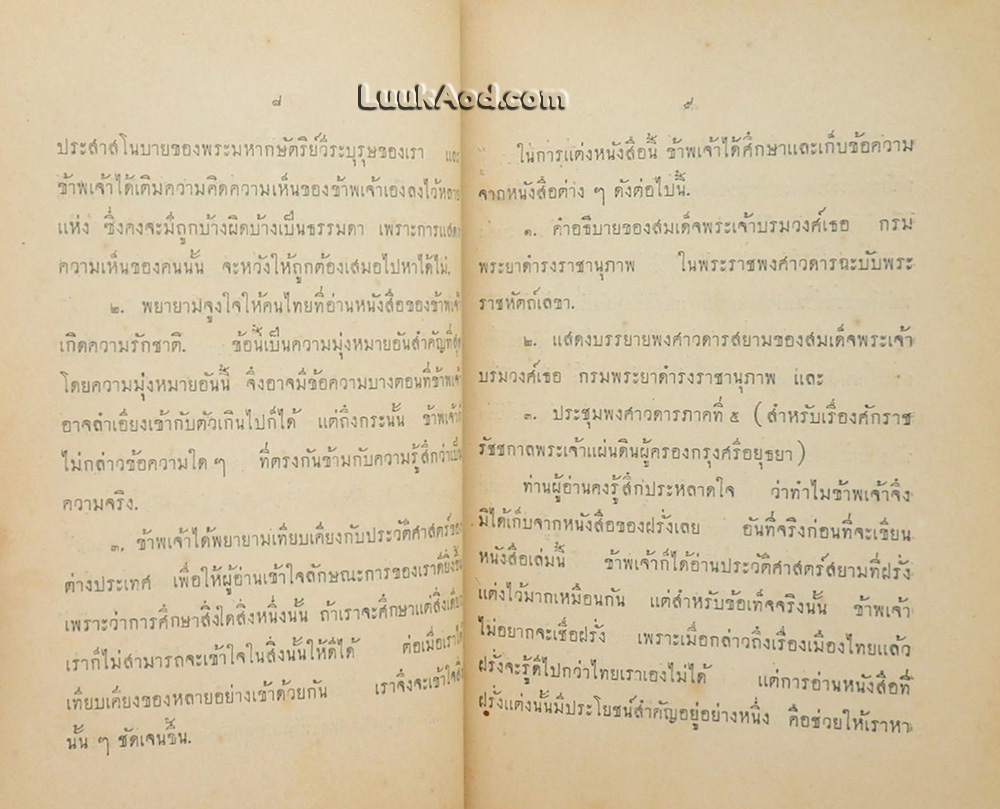 ๘
LuukAod.com
ประสาสโนบายของพระมหากษัตริย์วีระบุรุษของเรา และ
ข้าพเจ้าได้เติมความคิดความเห็นของข้าพเจ้าเองลงไว้หลาย
แห่ง ซึ่งคงจะมีถูกบ้างผิดบ้างเป็นธรรมดา เพราะการแสดง
ความเห็นของคนนั้น จะหวังให้ถูกต้องเสมอไปหาได้ไม่.
๒. พยายามจูงใจให้คนไทยที่อ่านหนังสือของข้าพเจ้า
เกิดความรักชาติ. ข้อนี้เป็นความมุ่งหมายอันสำคัญที่สุด
โดยความมุ่งหมายอันนี้ จึงอาจมีข้อความบางตอนที่ข้าพเจ้า
อาจลำเอียงเข้ากับตัวเกินไปก็ได้ แต่ถึงกระนั้น ข้าพเจ้าก็
ไม่กล่าวข้อความใด ๆ ที่ตรงกันข้ามกับความรู้สึกว่าเป็น
ความจริง.
๓. ข้าพเจ้าได้พยายามเทียบเคียงกับประวัติศาสตร์ของ
ต่างประเทศ เพื่อให้ผู้อ่านเข้าใจลักษณะการของเราดียิ่งขึ้น
เพราะว่าการศึกษาสิ่งใดสิ่งหนึ่งนั้น ถ้าเราจะศึกษาแต่สิ่งเดียว
เราก็ไม่สามารถจะเข้าใจในสิ่งนั้นให้ดีได้ ต่อเมื่อเราได้
เทียบเคียงของหลายอย่างเข้าด้วยกัน เราจึงจะเข้าใจสิ่ง
นั้น ๆ ชัดเจนขึ้น.
๙
ในการแต่งหนังสือนี้ ข้าพเจ้าได้ศึกษาและเก็บข้อความ
จากหนังสือต่าง ๆ ดังต่อไปนี้.
๑. คำอธิบายของสมเด็จพระเจ้าบรมวงศ์เธอ กรม
พระยาดำรงราชานุภาพ ในพระราชพงศาวดารฉะบับพระ
ราชหัตถ์เลขา.
๒. แสดงบรรยายพงศาวดารสยามของสมเด็จพระเจ้า
บรมวงศ์เธอ กรมพระยาดำรงราชานุภาพ และ
๓. ประชุมพงศาวดารภาคที่ ๕ (สำหรับเรื่องศักราช
รัชชกาลพระเจ้าแผ่นดินผู้ครองกรุงศรีอยุธยา)
ท่านผู้อ่านคงรู้สึกประหลาดใจ ว่าทำไมข้าพเจ้าจึง
มิได้เก็บจากหนังสือของฝรั่งเลย อันที่จริงก่อนที่จะเขียน
หนังสือเล่มนี้ ข้าพเจ้าก็ได้อ่านประวัติศาสตร์สยามที่ฝรั่ง
แต่งไว้มากเหมือนกัน แต่สำหรับข้อเท็จจริงนั้น ข้าพเจ้า
ไม่อยากจะเชื่อฝรั่ง เพราะเมื่อกล่าวถึงเรื่องเมืองไทยแล้ว
ฝรั่งจะรู้ดีไปกว่าไทยเราเองไม่ได้ แต่การอ่านหนังสือที่
ฝรั่งแต่งนั้นมีประโยชน์สำคัญอยู่อย่างหนึ่ง คือช่วยให้เราหา